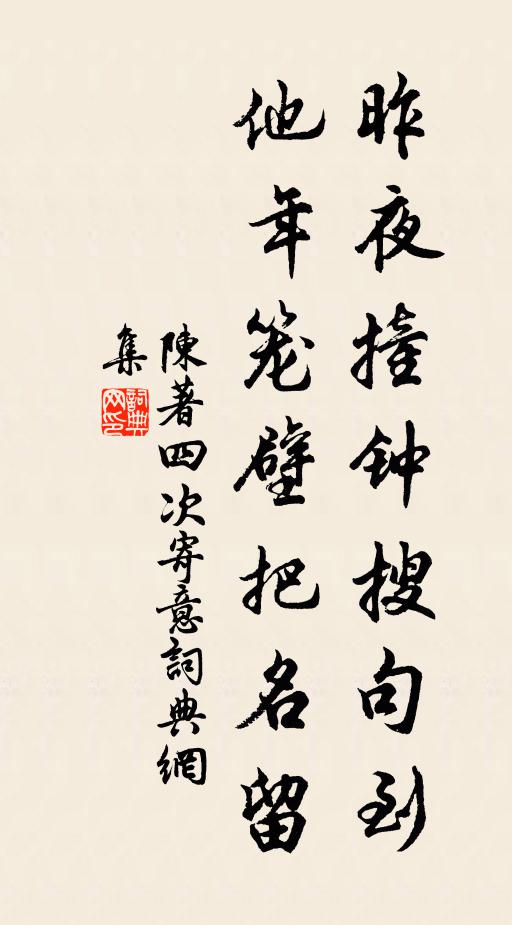 昨夜撞钟搜句到
他年笼壁把名留
陳著四次寄意詞典網
集
詞典网印